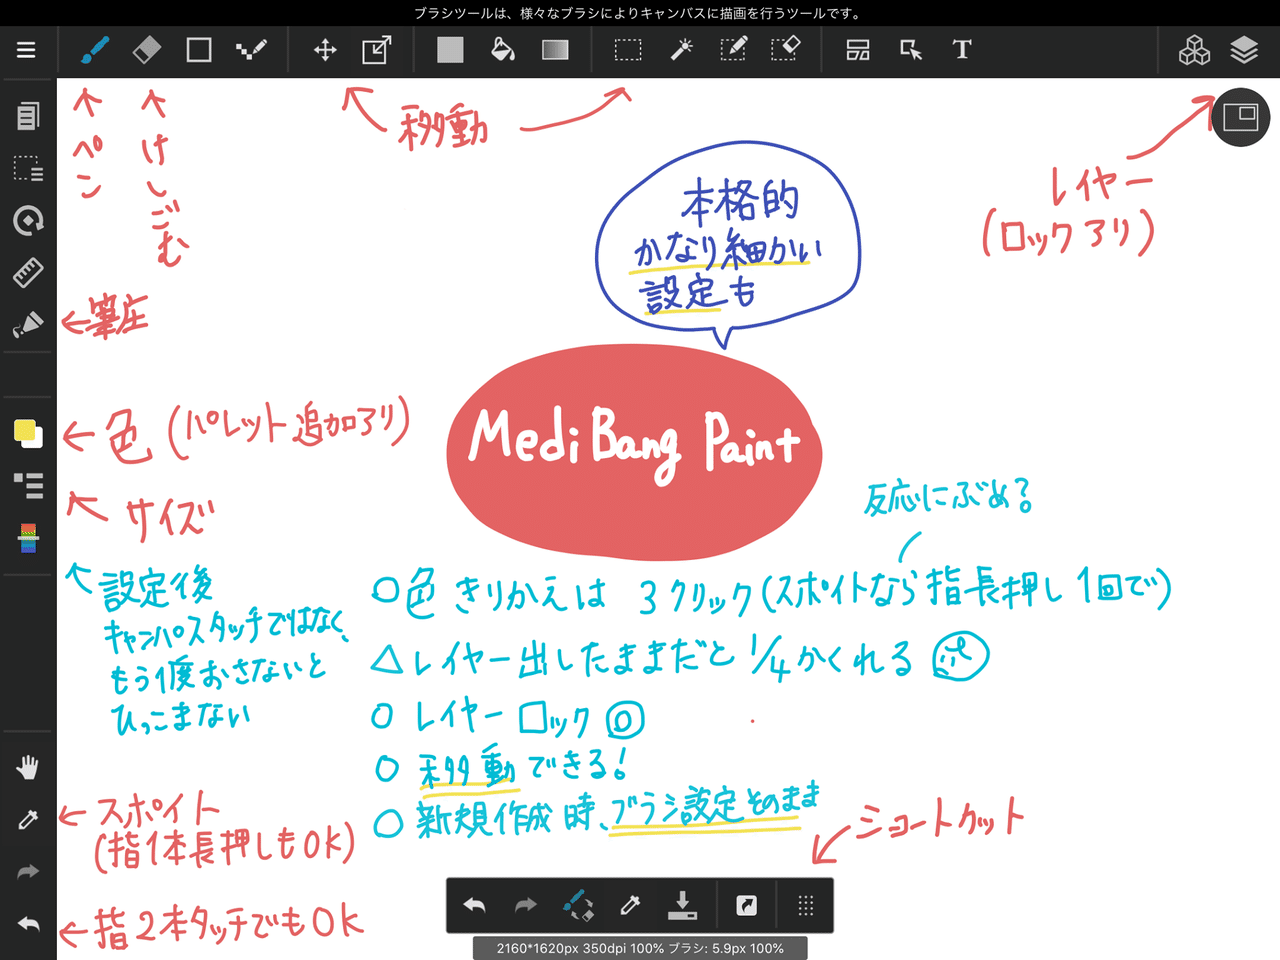 ブラシツールは、様々なブラシによりキャンバスに描画を行うツールです。
T
ペン
けしごむ
移動
レイヤー
(ロックアリ)
本格的
かなり細かい
設定も
←筆圧
←色 (パレット追加アリ)
サイズ
MediBang Paint
反応にぶめ?
設定後
キャンパスタッチではなく、
もう1度おさないと
ひっこまない
○色きりかえは 3クリック(スポイトなら指長押し1回で)
△レイヤー出したままだと 1/4かくれる
○ レイヤーロック◎
○ 移動できる!
○ 新規作成時、ブラシ設定そのまま
←スポイト
(指1本長押しもOK)
ショートカット
←指2本タッチでもOK
2160*1620px 350dpi 100% ブラシ: 5.9px 100%